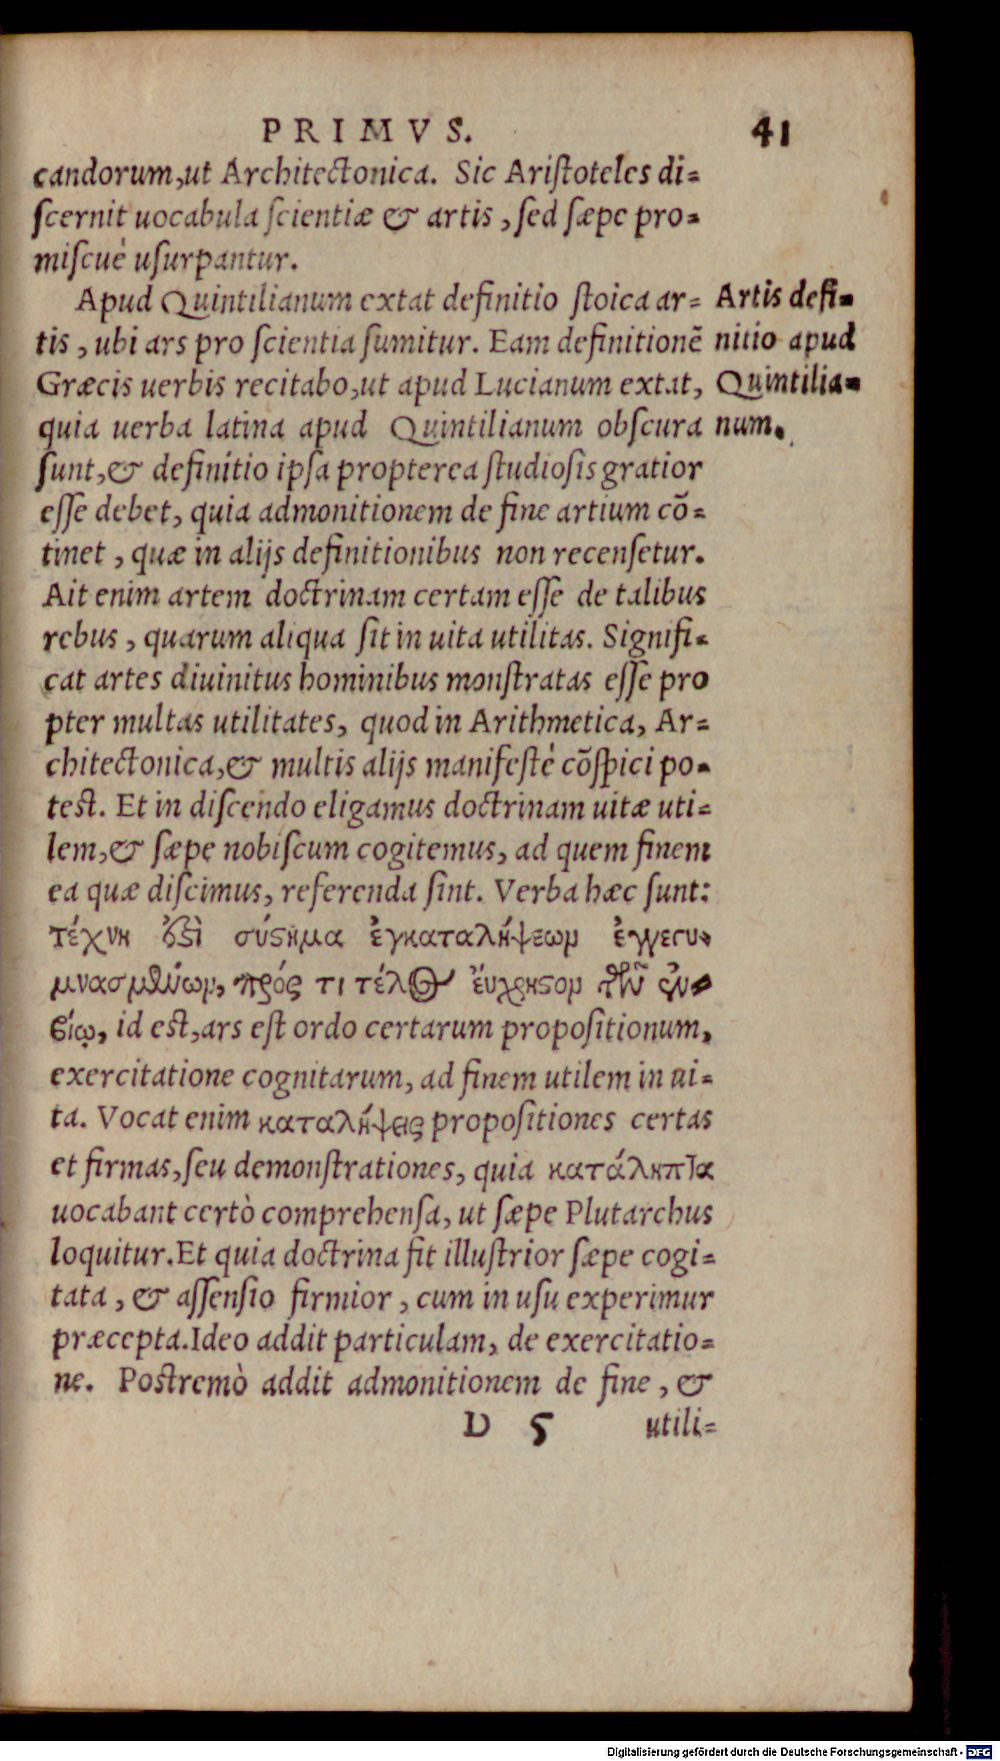 PRIMVS. 41
candorum,ut Architectonica. Sic Aristoteles di=
scernit uocabula scientiæ & artis, sed sæpe pro=
miscuè usurpantur.
Apud Quintilianum extat definitio stoica ar=
tis, ubi ars pro scientia sumitur. Eam definitionẽ
Græcis uerbis recitabo,ut apud Lucianum extat,
quia uerba latina apud Quintilianum obscura
sunt,& definitio ipsa propterea studiosis gratior
esse debet, quia admonitionem de fine artium cõ=
tinet, quæ in alijs definitionibus non recensetur.
Ait enim artem doctrinam certam esse de talibus
rebus, quarum aliqua sit in uita utilitas. Signifi=
cat artes diuinitus hominibus monstratas esse pro
pter multas utilitates, quod in Arithmetica, Ar=
chitectonica,& multis alijs manifestè cõspici po=
test. Et in discendo eligamus doctrinam uitæ uti=
lem,& sæpe nobiscum cogitemus, ad quem finem
ea quæ discimus, referenda sint. Verba hæc sunt:
τέχνη ὀξὶ σύςημα ἐγκαταλήψεωμ ἐγγεγυ=
μνασμένωμ, πρός τι τέλος ἔυχρηςομ τῶν ἐν
βίῳ, id est,ars est ordo certarum propositionum,
exercitatione cognitarum, ad finem utilem in ui=
ta. Vocat enim καταλήψεις propositiones certas
et firmas,seu demonstrationes, quia κατάληπτα
uocabant certò comprehensa, ut sæpe Plutarchus
loquitur.Et quia doctrina fit illustrior sæpe cogi=
tata, & assensio firmior, cum in usu experimur
præcepta.Ideo addit particulam, de exercitatio=
ne. Postremò addit admonitionem de fine, &
D 5 utili=
Artis defi=
nitio apud
Quintilia=
num.
Digitalisierung gefördert durch die Deutsche Forschungsgemeinschaft - DFG